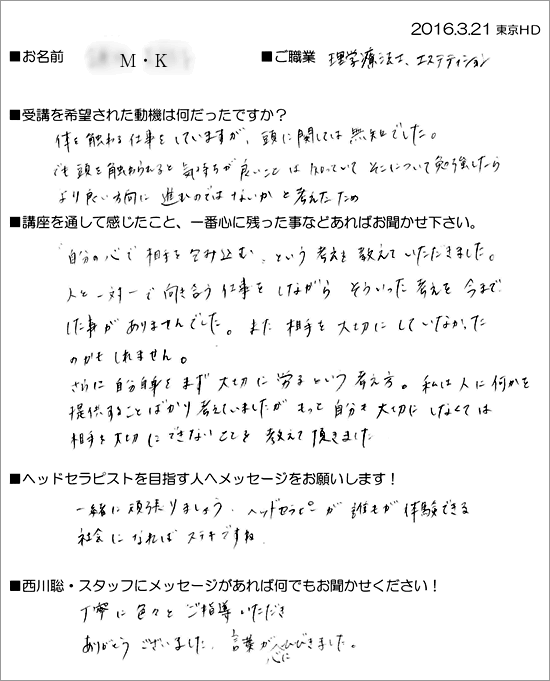 2016.3.21 東京HD
■お名前 M・K ■ご職業 理学療法士、エステティシャン
■受講を希望された動機は何だったですか？
体を触れる仕事をしていますが、頭に関しては無知でした。
でも頭を触れられると気持ちが良いことは知っていてそこについて勉強したら
より良い方向に進むのではないかと考えたため
■講座を通して感じたこと、一番心に残った事などあればお聞かせ下さい。
「自分の心で相手を包み込む」という考えを教えていただきました。
人と一対一で向き合う仕事をしながらそういった考えを今まで
した事がありませんでした。また相手を大切にしていなかった
のかもしれません。
さらに自分自身をまず大切に労るという考え方。私は人に何かを
提供することばかり考えていましたがもっと自分を大切にしなくては
相手を大切にできないことを教えて頂きました
■ヘッドセラピストを目指す人へメッセージをお願いします！
一緒に頑張りましょう。ヘッドセラピーが誰もが体験できる
社会になればステキですね
■西川聡・スタッフにメッセージがあれば何でもお聞かせください！
丁寧に色々とご指導いただき
ありがとうございました。言葉が心にひびきました。